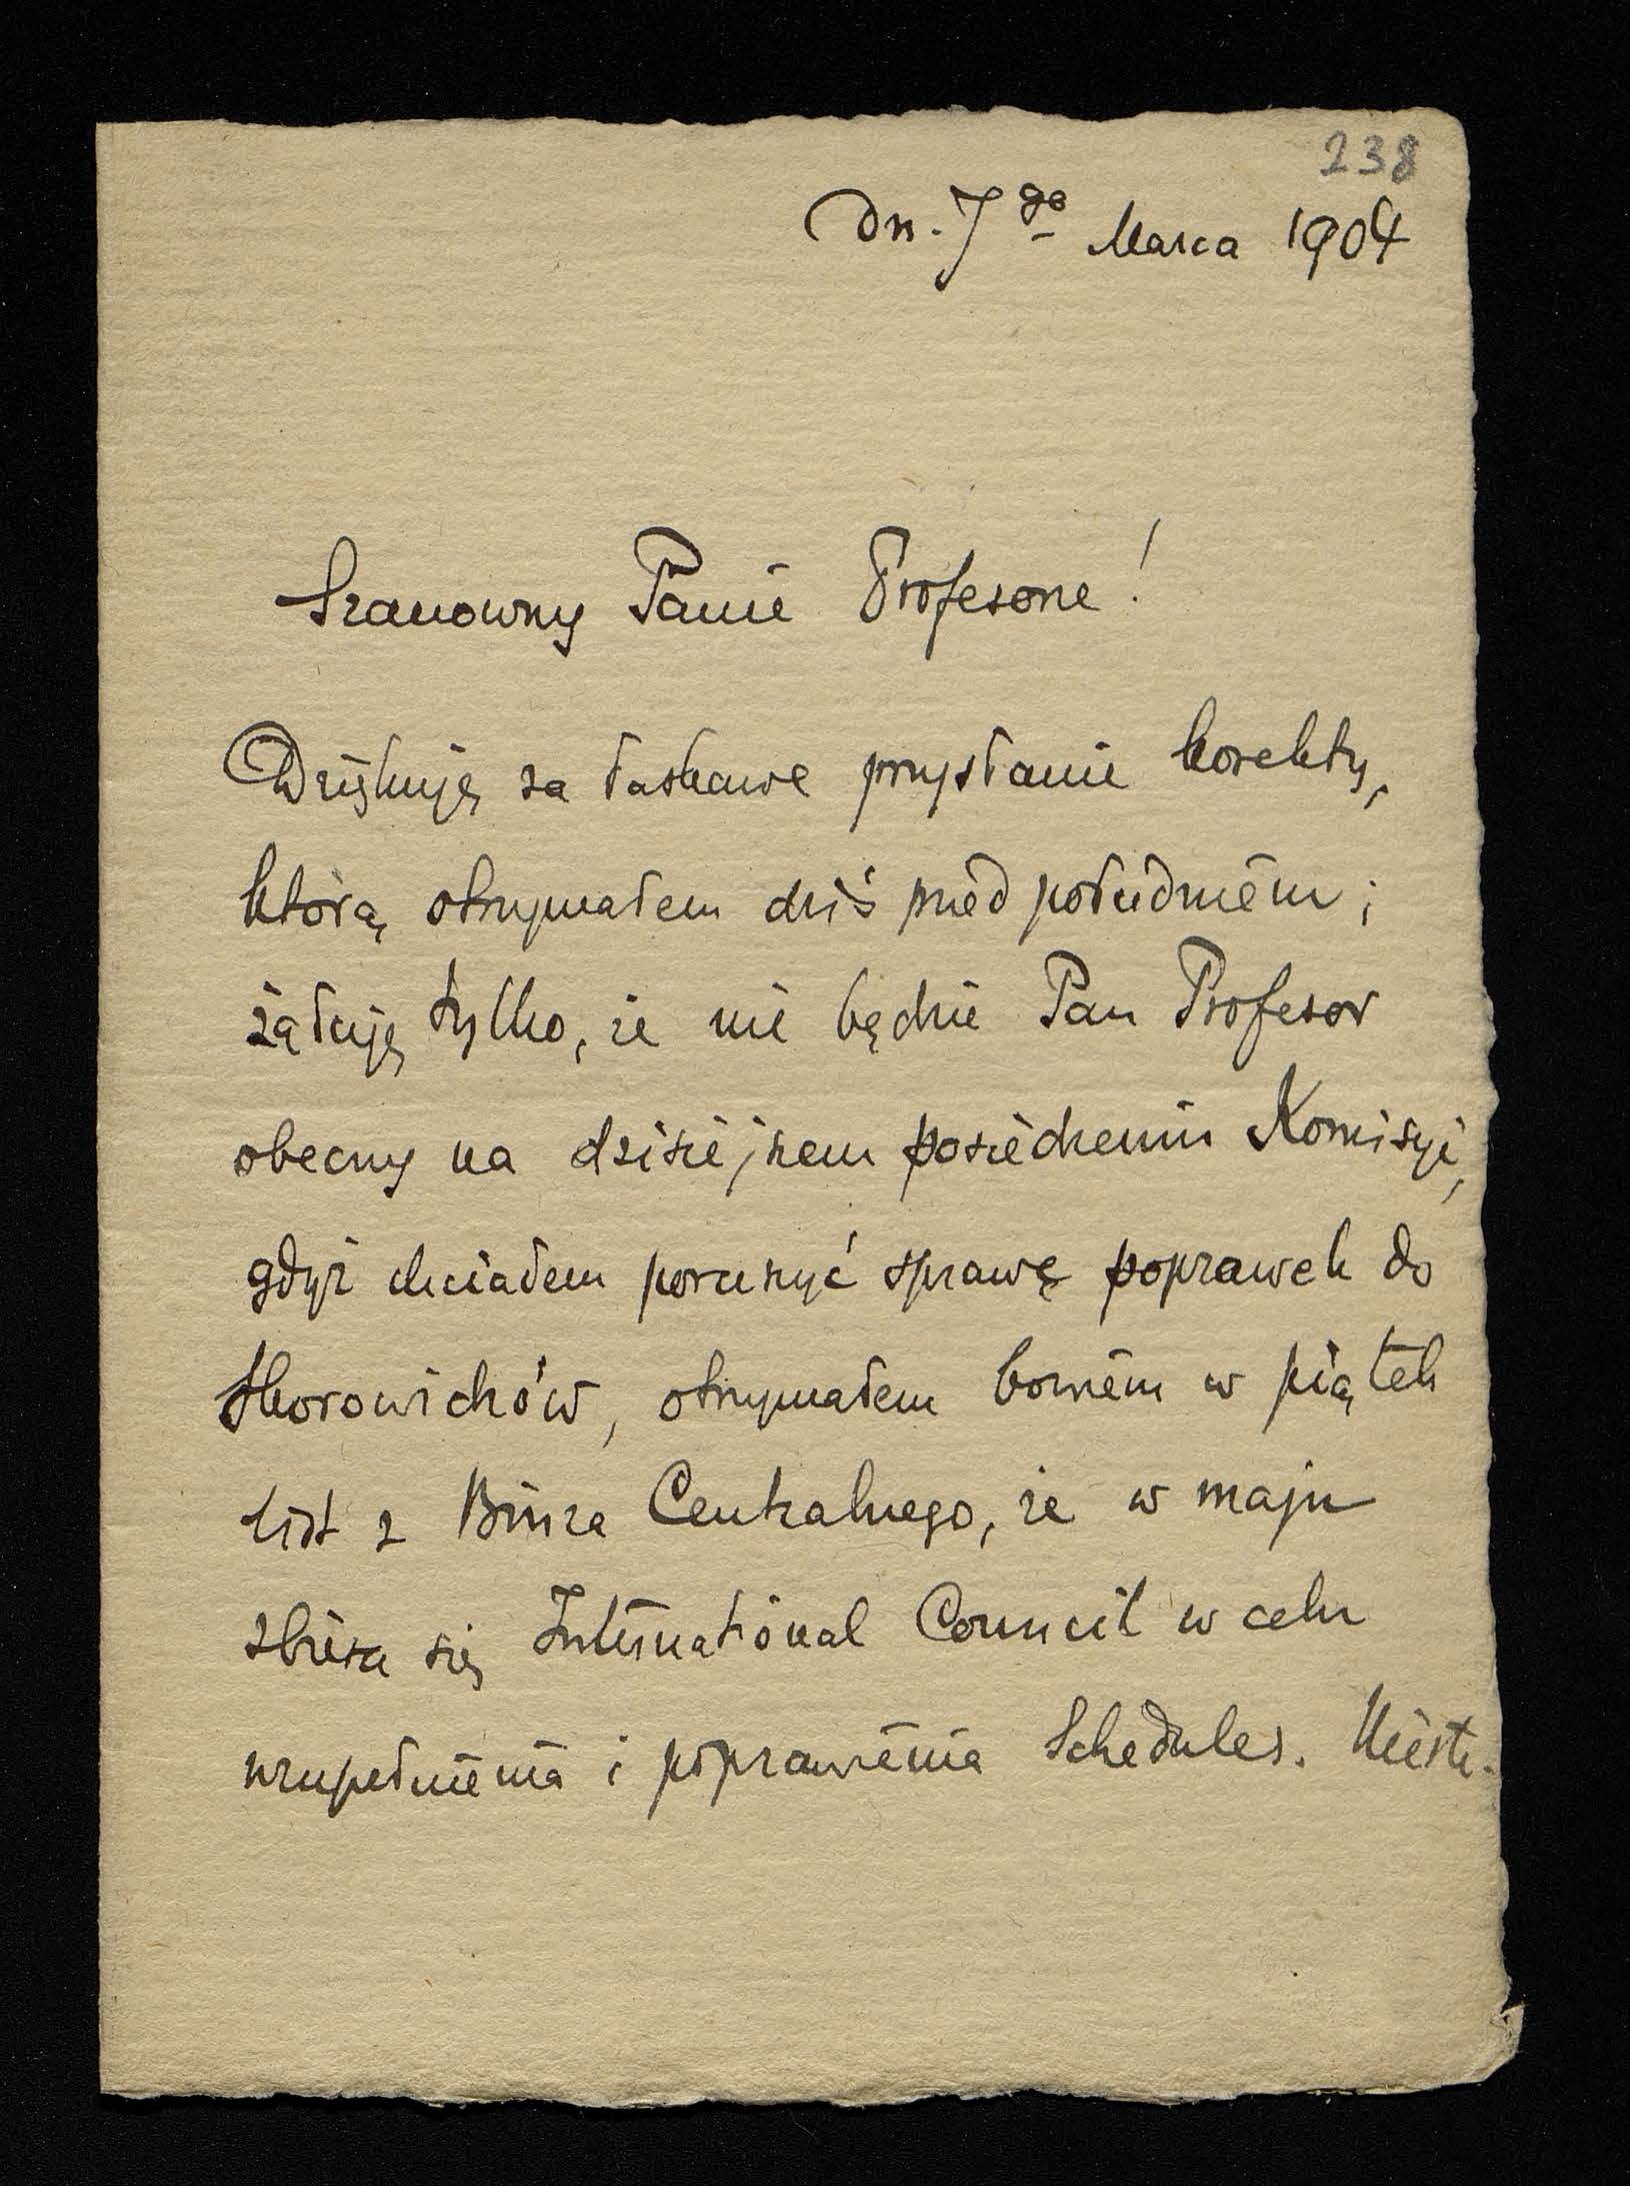 238
Dn. 7go Marca 1904
Szanowny Panie Profesorze!
Dziękuję za łaskawe przysłanie korekty,
którą otrzymałem dziś przed południem;
żałuję tylko, że nie będzie Pan Profesor
obecny na dzisiejszem posiedzeniu Komisyi,
gdyż chciałem poruszyć sprawę poprawek do
Skorowidzów, otrzymałem bowiem w piątek
list z Biura Centralnego, że w maju
zbiera się International Council w celu
uzupełnienia i poprawienia Schedules. Nieste-